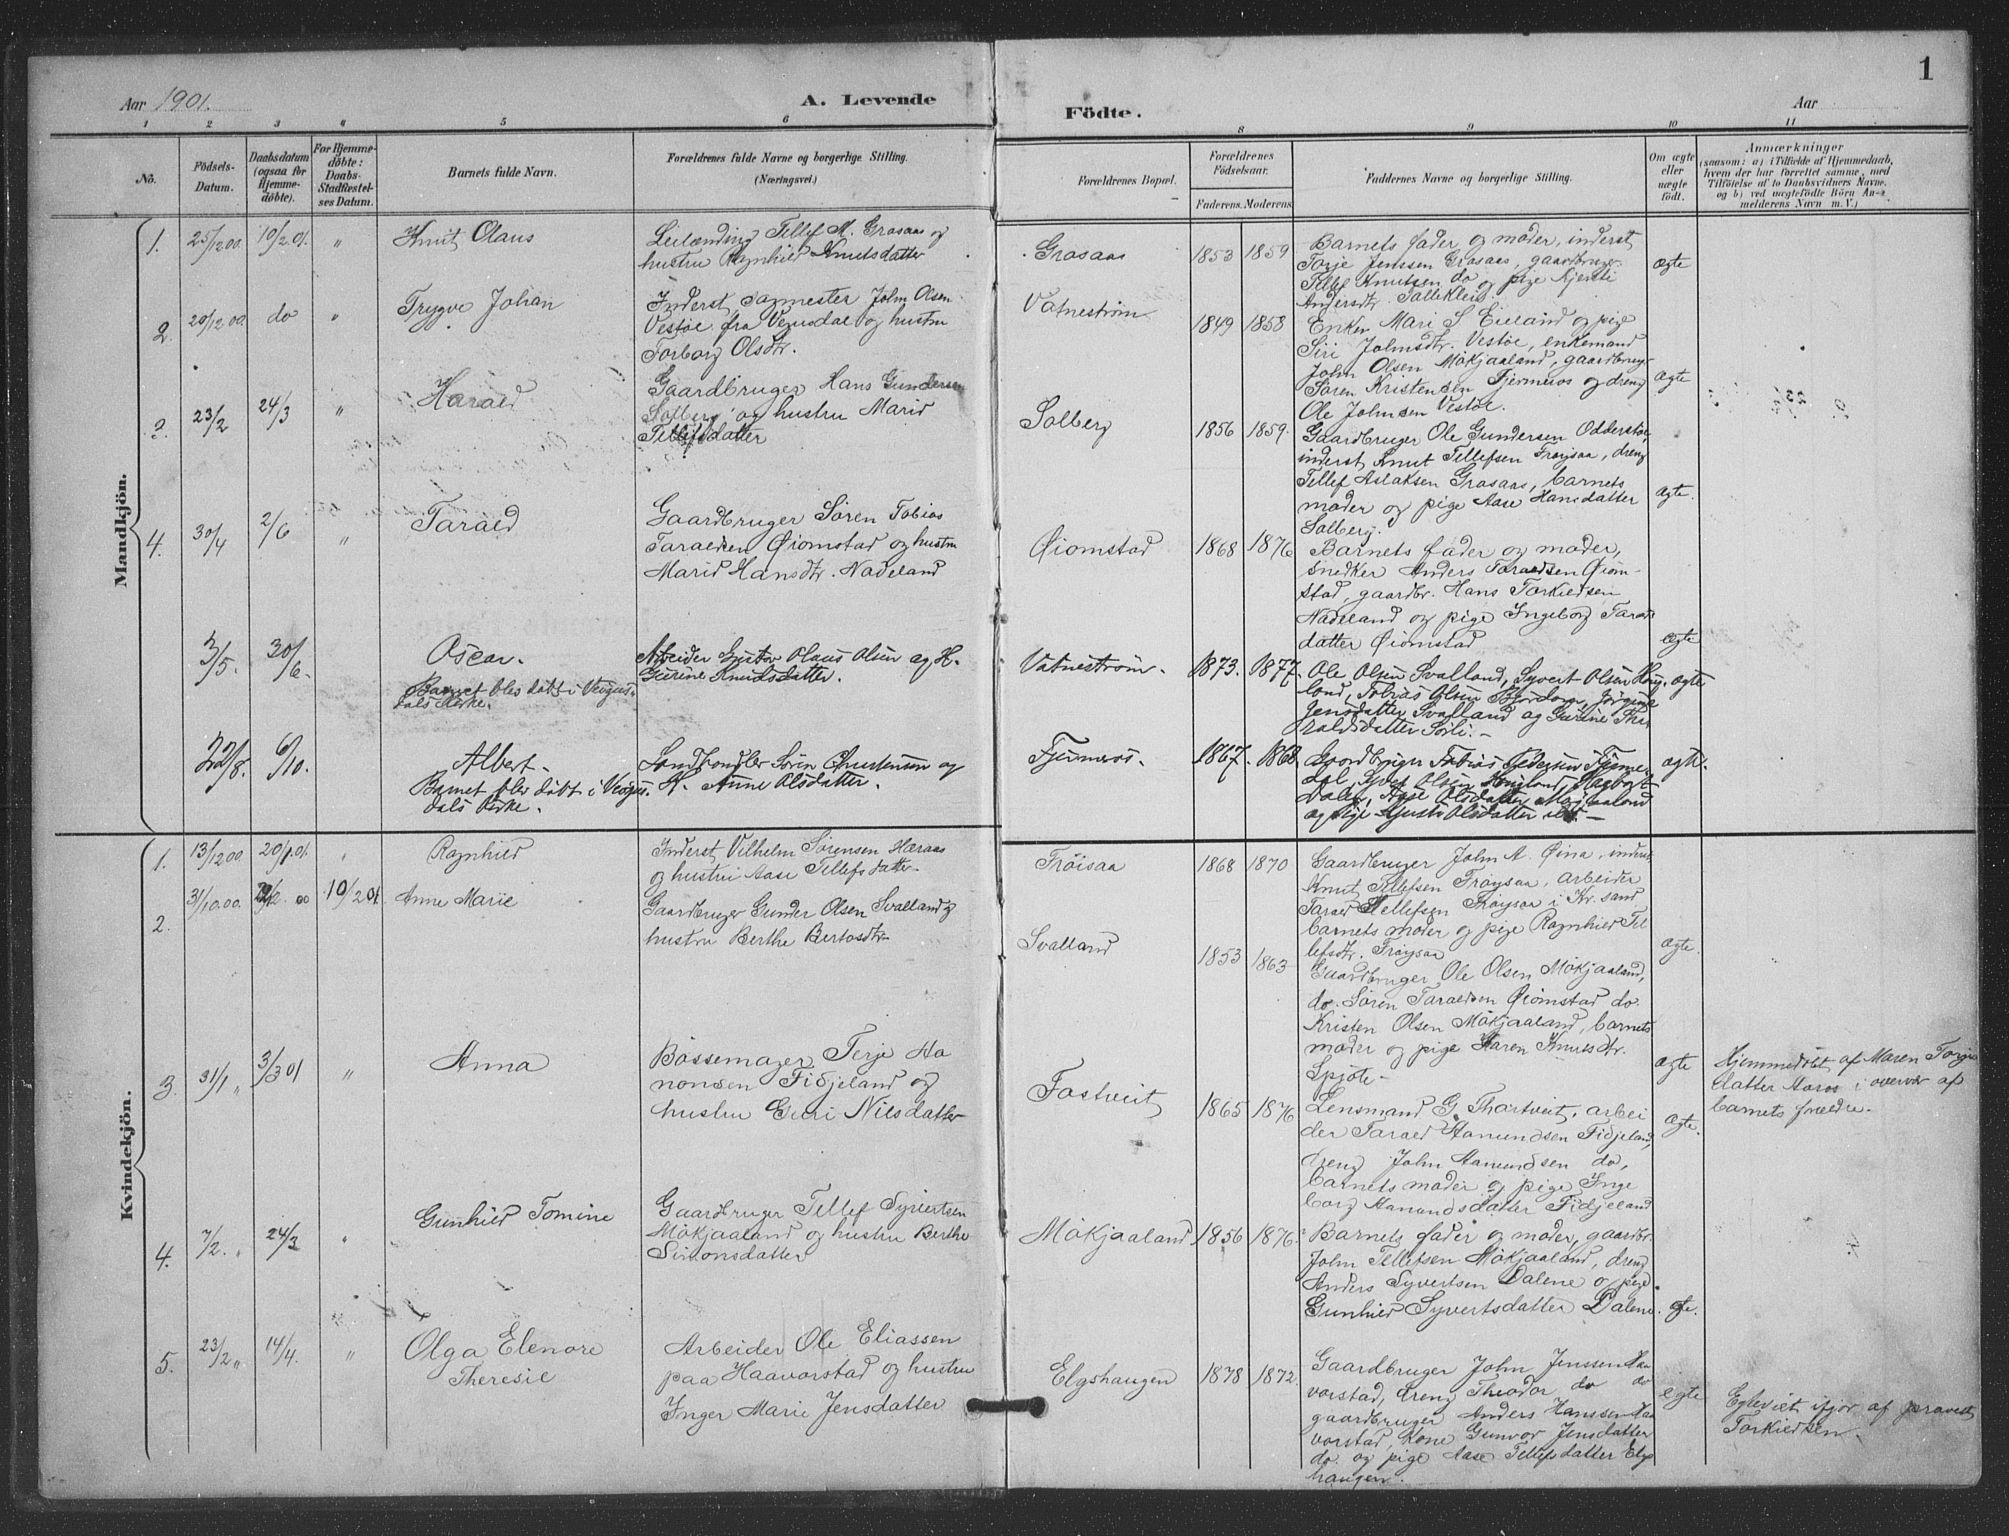 1
Aar 1901.
A. Levende
Födte.
Aar
1 2 3 4 5 6 8 9 10 11
No.
Födsels-
Datum.
Daabsdatum
(ogsaa for
Hjemme-
döbte).
For Hjemme-
döbte:
Daabs-
Stadfæstel-
ses Datum.
Barnets fulde Navn.
Forældrenes fulde Navne og borgerlige Stilling.
(Næringsvei.)
Forældrenes Bopæl.
Forældrenes
Födselsaar.
Faderens. Moderens.
Faddernes Navne og borgerlige Stilling.
Om ægte
eller
uægte
födt.
Anmærkninger
(saasom: a) i Tilfælde af Hjemmedaab,
hvem der har forrettet samme, med
Tilföielse af to Daabsvidners Navne,
og b) ved uægtefödte Börn An-
melderens Navn m. V.)
Mandkjön.
1. 25/12 00. 10/2 01. " Knut Olaus
Leilænding Tellef A. Grosaas og
hustru Ragnhild Knutsdatter
Grosaas 1853 1859
Barnets fader og moder, inderst
Terje Jenssen Grosaas, gaardbruger
Tellef Knutsen do og pige Kjersti
Andersdtr. Tallekleiv.
ægte
2. 20/12 00. do " Trygve Johan
Inderst sagmester John Olsen
Vestöl fra Vegusdal og hustru
Torborg Olsdtr.
Vatneström 1849 1858
Enken Mari S Eieland og pige
Siri Johnsdtr. Vestöl, enkemand
John Olsen Mökjaaland, gaardbrug.
Sören Kristensen Fjermeros og dreng
Ole Johnsen Vestöl.
ægte
3. 23/2 24/3 " Harald
Gaardbruger Hans Gundersen
Solberg og hustru Marid
Tellefsdatter
Solberg 1856 1859.
Gaardbruger Ole Gundersen Odderstöl,
inderst Knut Tellefsen Tröysaa, dreng
Tellef Aslaksen Grosaas, barnets
moder og pige Aase Hansdatter
Solberg.
ægte
4. 30/4 2/6 " Tarald
Gaardbruger Sören Tobias
Taraldsen Öiomstad og hustru
Marid Hansdtr. Nadeland
Öiomstad 1868 1876
Barnets fader og moder,
snedker Anders Taraldsen Öiom-
stad, gaardbr. Hans Torkieldsen
Nadeland og pige Ingeborg Taralds
datter Öiomstad
ægte
3/5. 30/6. Oscar.
Barnet blev döbt i Vegus-
dals Kirke.
Arbeider Gustav Olaus Olsen og H.
Gurine Knudsdatter.
Vatneström. 1873. 1877.
Ole Olsen Svalland, Syvert Olsen Houg-
land, Tobias Olsen, Jörgine
Jensdatter Svalland og Gurine Tha-
raldsdatter Sörli.
ægte
22/8. 6/10. Albert.
Barnet blev döbt i Vegus-
dals Kirke.
Landhandler Sören Christensen og
H. Anne Olsdatter.
Fjermeros. 1867. 1868.
Gaardbruger Tobias Pedersen Fjerme-
dal, Syvert Olsen Hougland,
Dalen, Aase Olsdatter Mökjaaland
og pige Olsdatter
ægte.
Kvindekjön.
1. 13/12 00. 20/1 01. " Ragnhild
Inderst Vilhelm Sörensen Heraas
og hustru Aase Tellefsdatter
Tröisaa 1868 1870
Gaardbruger John A. Öina, inderst
Knut Tellefsen Tröysaa, arbeider
Tarald Tellefsen Tröysaa i Kr. sand
barnets moder og pige Ragnhild Tel
lefsdtr. Tröysaa
ægte.
2. 31/10 00. 00 10/2 01. Anne Marie
Gaardbruger Gunder Olsen Svalland og
hustru Berthe Bertosdtr.
Svalland 1853 1863
Gaardbruger Ole Olsen Mökjaaland,
do. Sören Taraldsen Öiomstad do.
Kristen Olsen Mökjaaland, barnets
moder og pige Karen Knutsdtr.
Spjöte
ægte
Hjemmedöbt af Maren Torjus
datter Aaros i overvær af
barnets forældre.
3. 31/1 " 3/3 01 " Anna
Bössemager Terje Ha
nonsen Fidjeland og
hustru Guri Nilsdatter
Tostveit 1865 1876
Lensmand G. Thortveit, arbei
der Tarald Aanundsen Fidjeland,
dreng John Aanundsen do,
barnets moder og pige Inge
borg Aanundsdatter Fidjeland
ægte.
4. 7/2. " 24/3 " Gunhild Tomine
Gaardbruger Tellef Syvertsen
Mökjaaland og hustru Berthe
Simonsdatter
Mökjaaland 1856 1876
Barnets fader og moder, gaardbr.
John Tellefsen Mökjaaland, dreng
Anders Syvertsen Dalene og pige
Gunhild Syvertsdatter Dalene.
ægte.
5. 23/2 " 14/4. " Olga Elenore
Theresie
Arbeider Ole Eliassen
paa Haavorstad og hustru
Inger Marie Jensdatter
Elgshaugen 1878 1872.
Gaardbruger John Jenssen Haa
vorstad, dreng Theodor do do
gaardbruger Anders Hanssen Haa
vorstad, kone Gunvor Jensdatter
do og pige Aase Tellefsdatter Elgs
haugen.
ægte
Egleviet ifjor af provest
Torkieldsen.